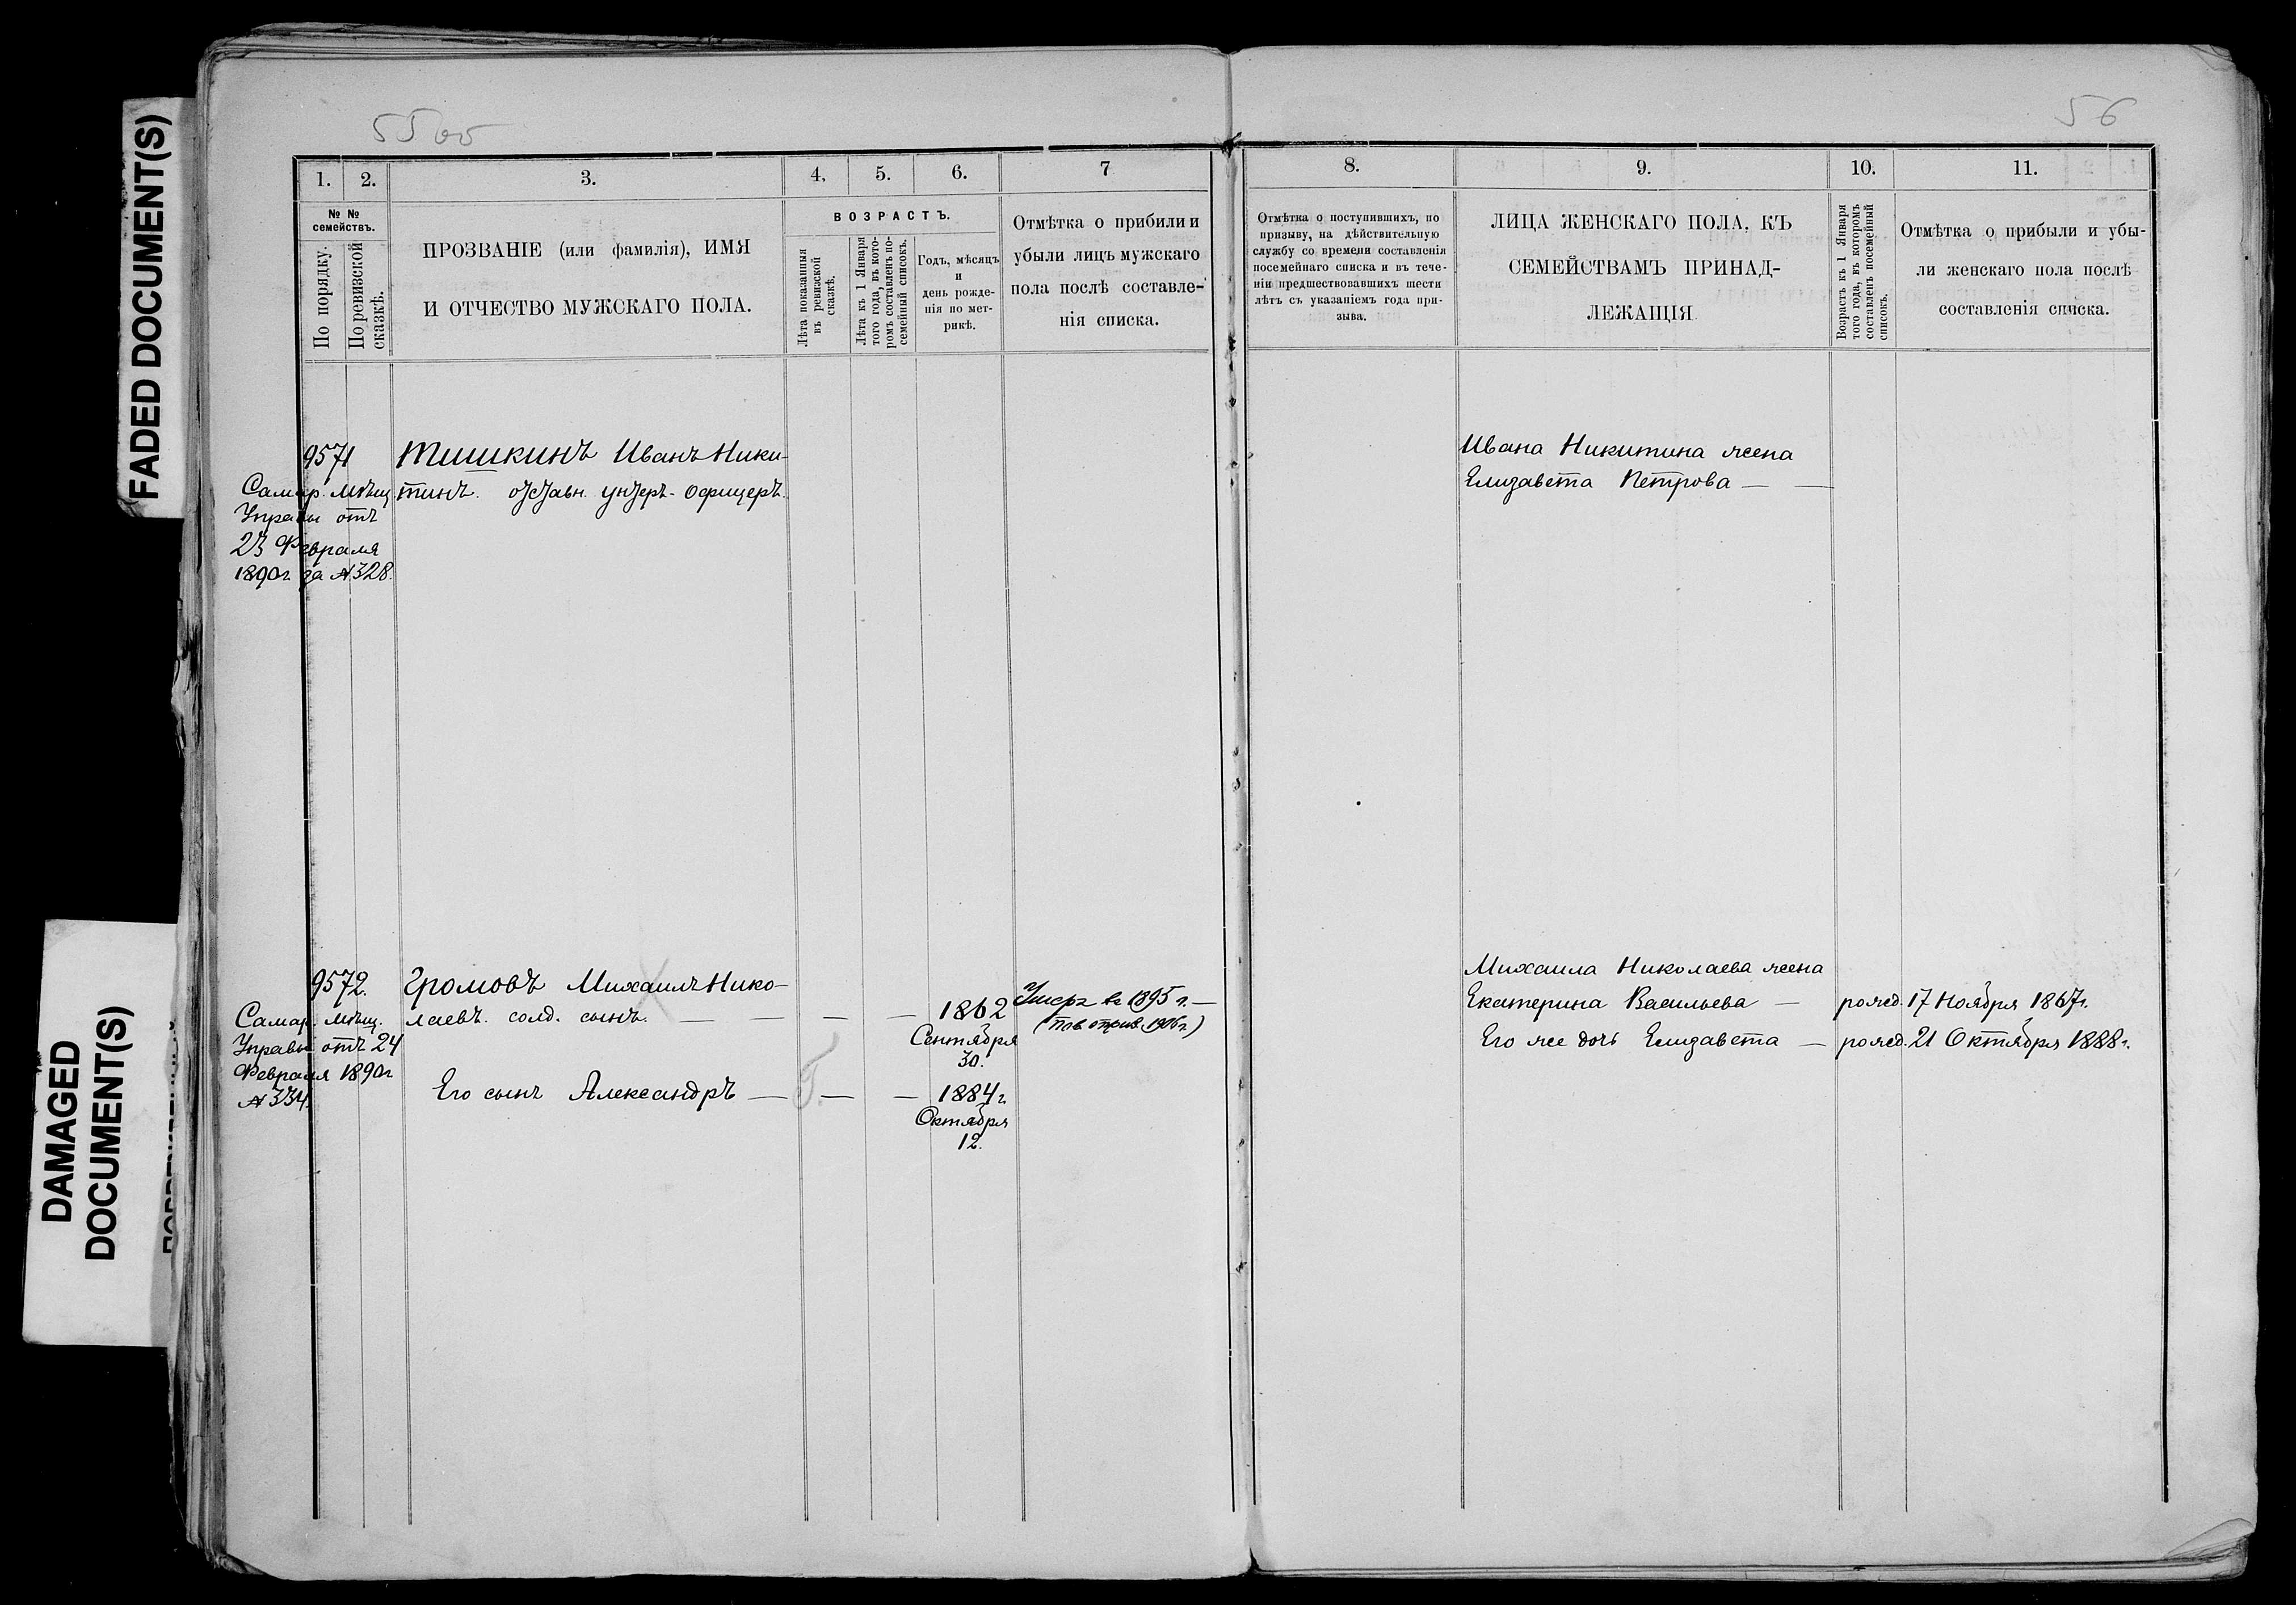 FADED DOCUMENT(S)
DAMAGED
DOCUMENT(S)
55об
56
1.
2.
3.
4.
5.
6.
7
8.
9.
10.
11.
№ №
семействъ.
По порядку.
По ревизской
сказкѣ.
ПРОЗВАНІЕ (или фамилія), ИМЯ
И ОТЧЕСТВО МУЖСКАГО ПОЛА.
ВОЗРАСТЪ.
Лѣта показанныя
въ ревизской
сказкѣ.
Лѣта къ 1 Января
того года, въ кото-
ромъ составленъ по-
семейный списокъ.
Годъ, мѣсяцъ
и
день рожде-
нія по мет-
рикѣ.
Отмѣтка о прибыли и
убыли лицъ мужскаго
пола послѣ составле-
нія списка.
Отмѣтка о поступившихъ, по
призыву, на дѣйствительную
службу со времени составленія
посемейнаго списка и въ тече-
ніи предшествовавшихъ шести
лѣтъ съ указаніемъ года при-
зыва.
ЛИЦА ЖЕНСКАГО ПОЛА, КЪ
СЕМЕЙСТВАМЪ ПРИНАД-
ЛЕЖАЩІЯ
Возрастъ къ 1 Января
того года, въ которомъ
составленъ посемейный
списокъ.
Отмѣтка о прибыли и убы-
ли женскаго пола послѣ
составленія списка.
9571
Самар. Мѣщ.
Управы отъ
23 Февраля
1890г. за №328.
Тишкинъ Иванъ Ники-
тинъ. отставн. унтеръ-офицеръ.
Ивана Никитина жена
Елизавета Петрова — —
9572.
Самар. Мѣщ.
Управы отъ 24
Февраля 1890г
№334.
Громовъ Михаилъ Нико-
лаевъ. солд. сынъ. — — — —
1862
Сентября
30.
Умеръ въ 1895 г. —
1906г.)
Его сынъ Александръ — — —
1884г.
Октября
12.
Михаила Николаева жена
Екатерина Васильева — рожд. 17 Ноября 1867г.
Его же дочь Елизавета — рожд. 21 Октября 1888г.